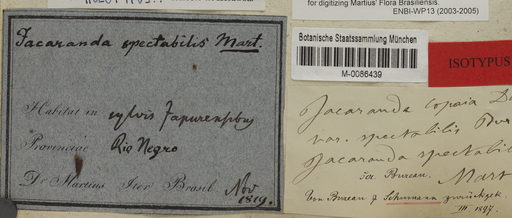 for digitizing Martius' Flora Brasiliensis.
ENBI-WP13 (2003-2005)
Jacaranda spectabilis Mart.
Habitat in sylvis Japurensibus
Provinciae Rio Negro
Dr Martius Iter Brasil Nov
1819.
Botanische Staatssammlung München
M-0086439
ISOTYPUS
Jacaranda copaia D
var. spectabilis Bur
Jacaranda spectabil
Bureau. Mart
Von Bureau & Schumann zurückgek.
III. 1897.